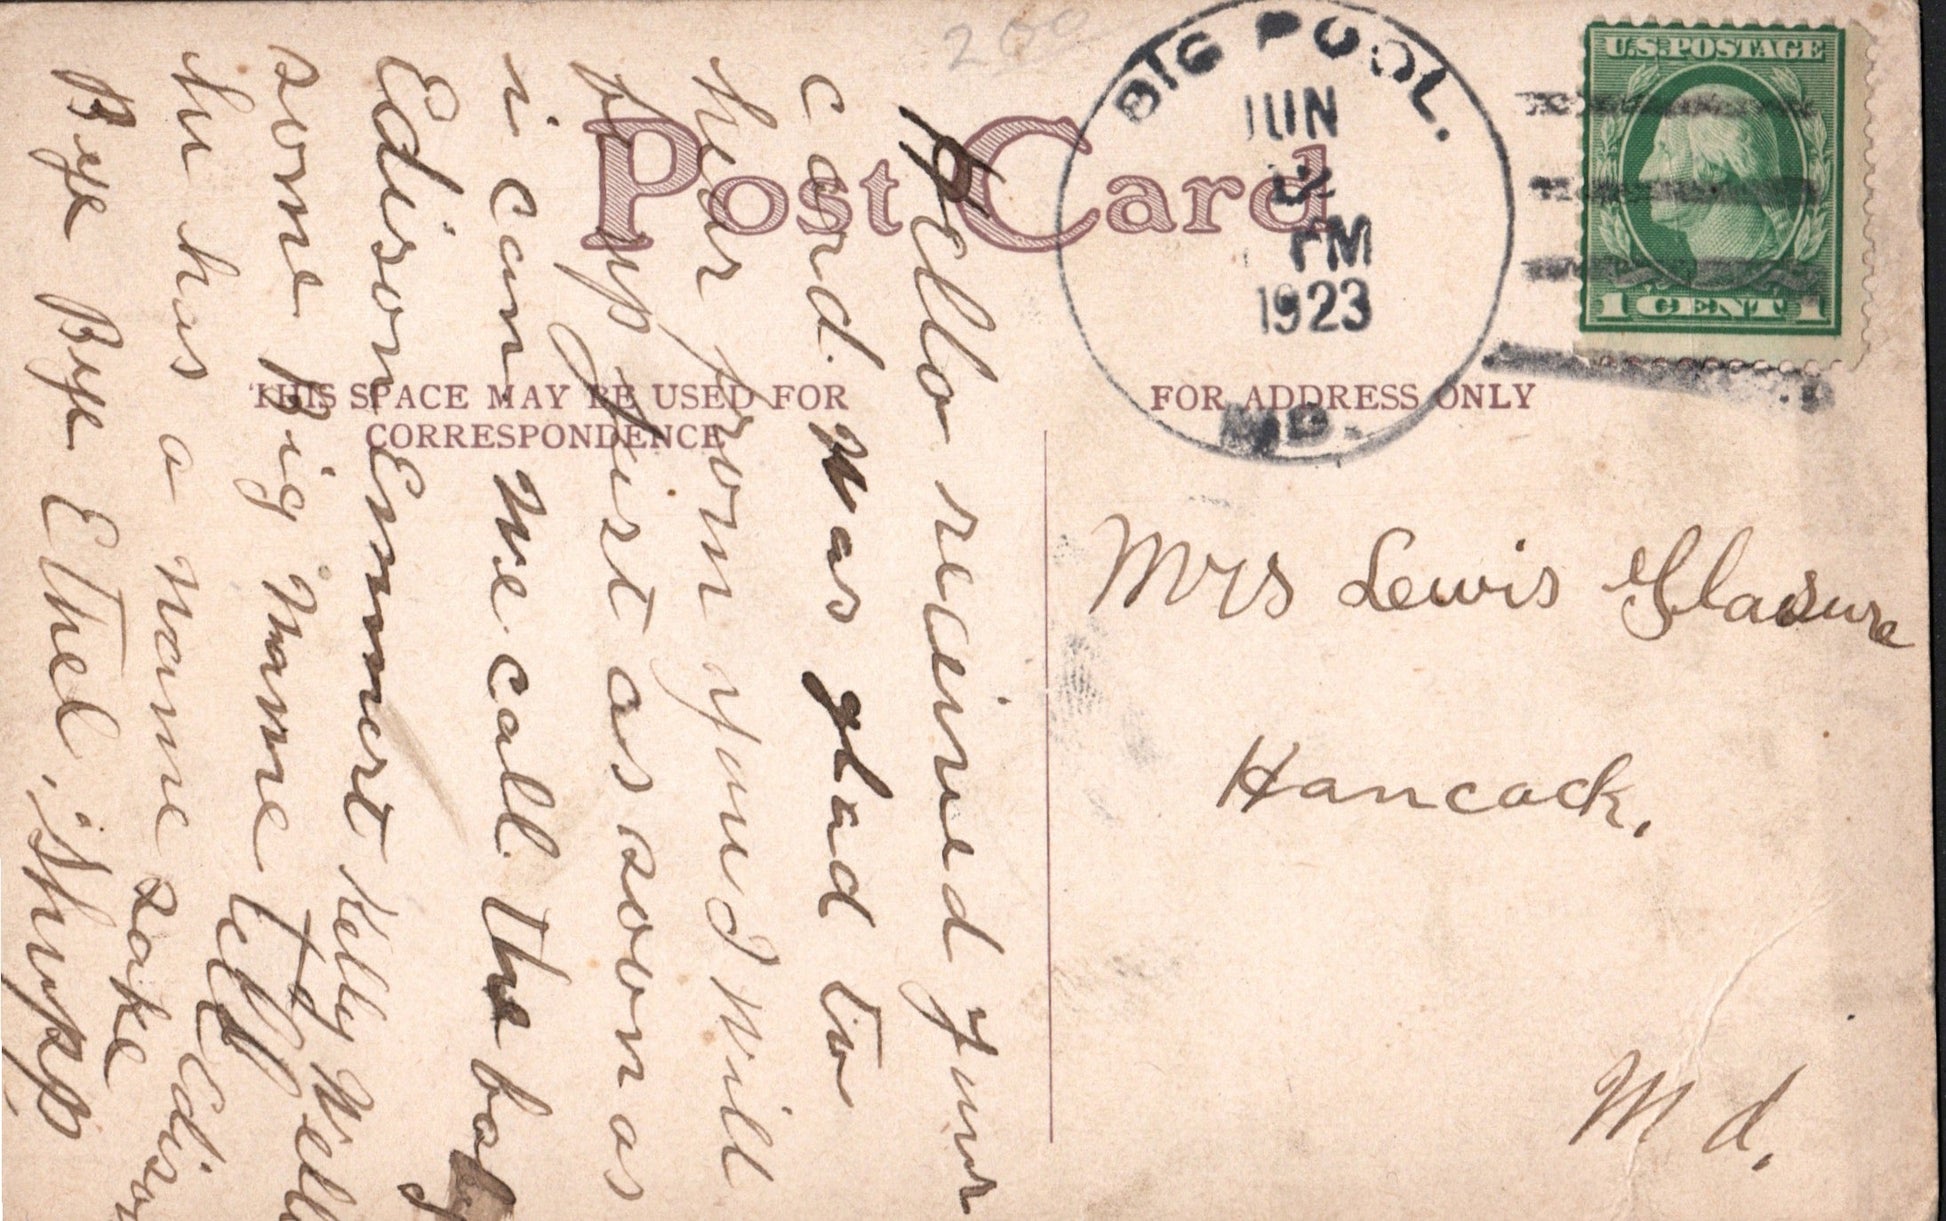 Post Card
BIG POOL.
JUN
2
PM
1923
MD.
U.S. POSTAGE
1 CENT 1
THIS SPACE MAY BE USED FOR
CORRESPONDENCE
FOR ADDRESS ONLY
Mrs Lewis Glasure
Hancock,
Md.
Hello recived your
card. Was glad to
hear from you I will
 as soon as
i can We call the baby
Edison Emmert Kelly Well
some Big Name tell
he has a name sake Edison
Bye Bye Ethel. Shupp